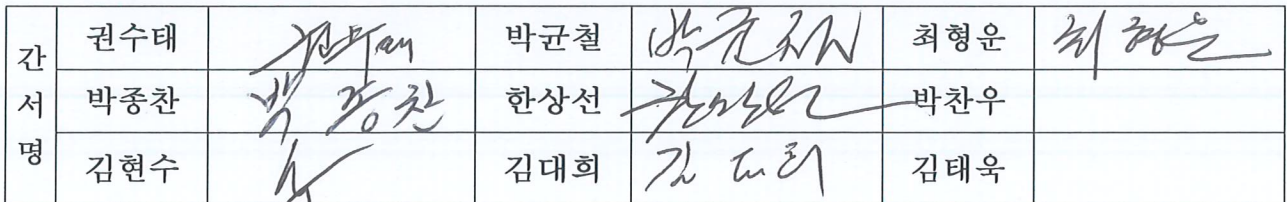 간서명
권수태 권수태 박균철 박균철 최형운 최형운
박종찬 박종찬 한상선 한상선 박찬우
김현수 김대희 김대희 김태욱